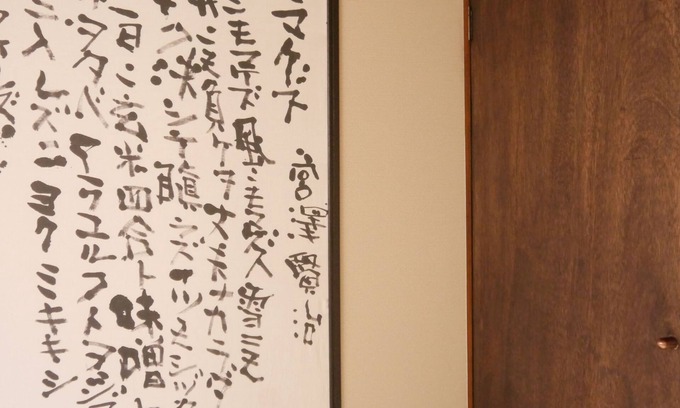 マケズ 宮澤賢治
ニモマケズ風ニモマケズ雪ニモ
負ケヌ丈夫ナカラダヲ
ク決シテ瞋ラズイツモシヅ
一日ニ玄米四合ト味噌ト
タベアラユルコトヲジブ
ニ入レズニヨクミキキシ